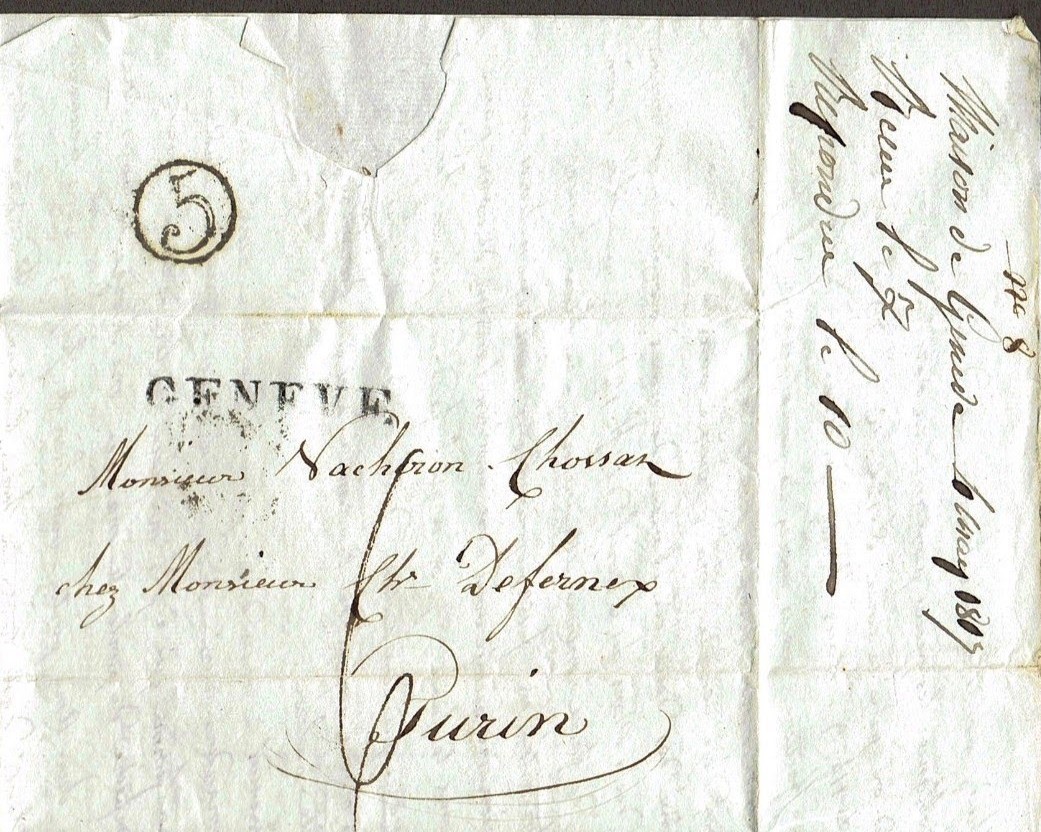 5
GENEVE
Monsieur Vacheron Chossat
chez Monsieur Chs Defernex
Turin
6
No 8
Maison de Geneve 6 may 1807
Recue le
Repondue le 10